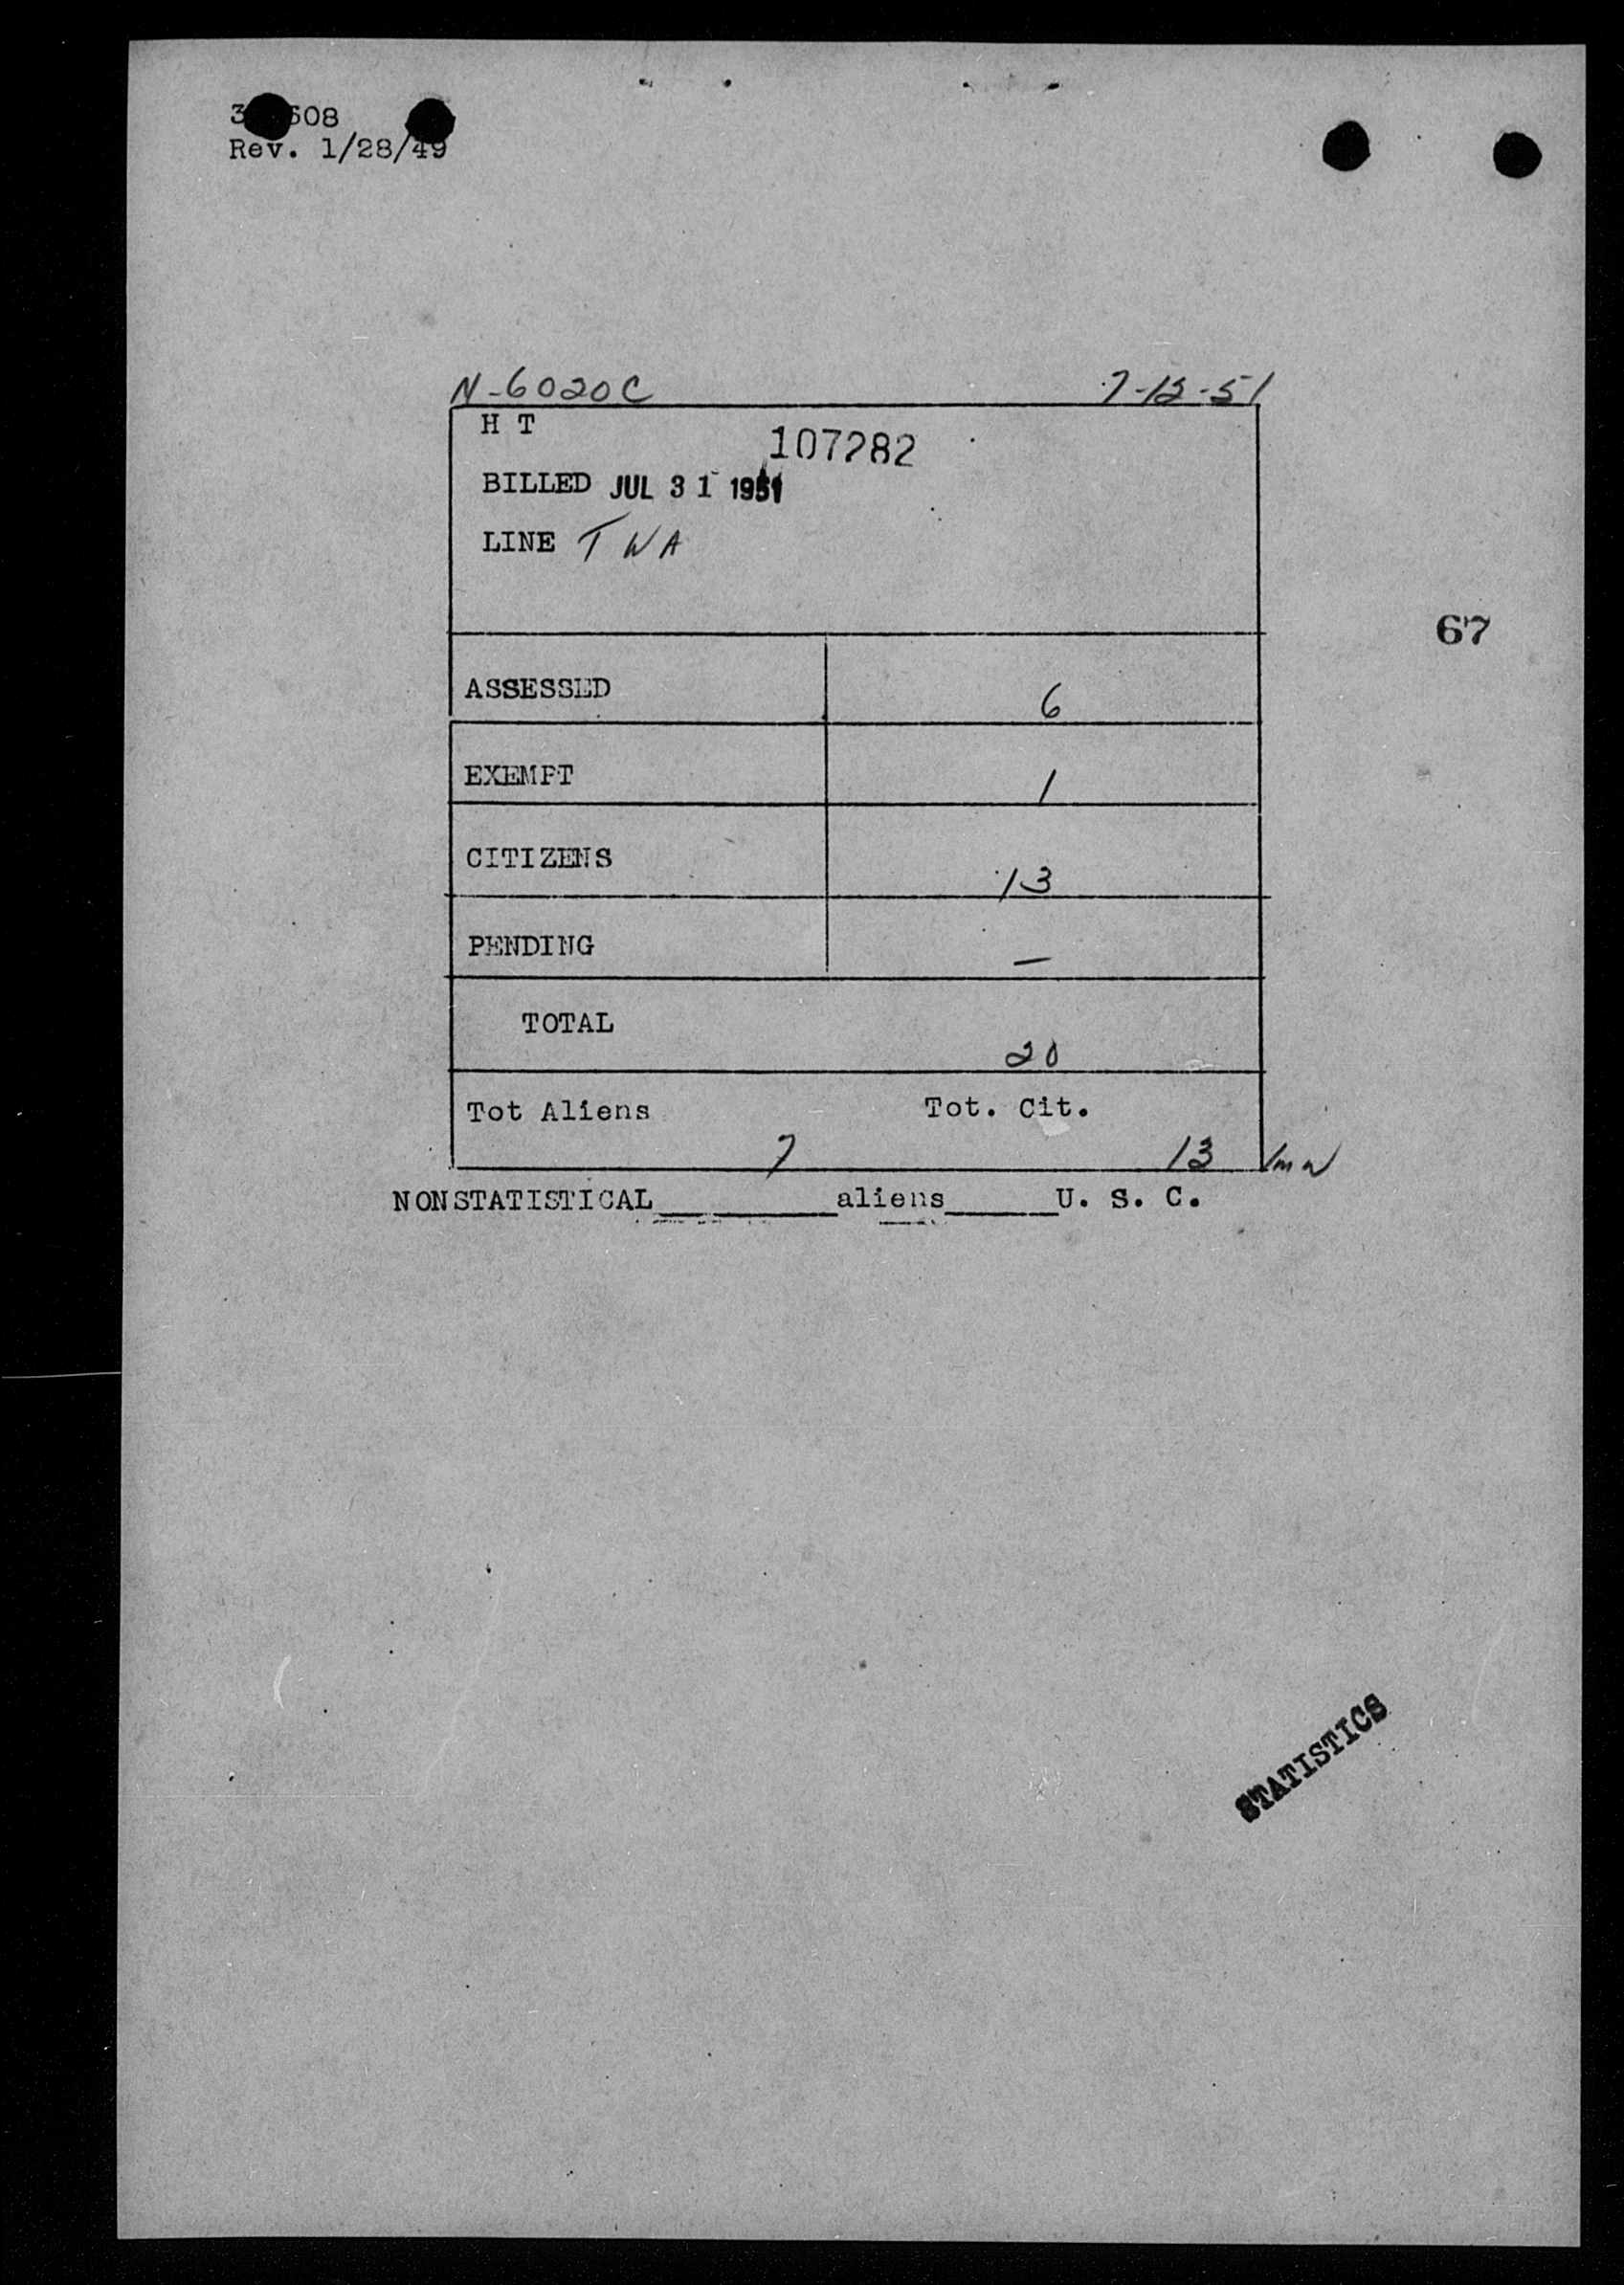 Rev. 1/28/49
N-6020C 7-12-51
H T
107282
BILLED JUL 31 1951
LINE TWA
67
ASSESSED 6
EXEMPT 1
CITIZENS 13
PENDING —
TOTAL 20
Tot Aliens Tot. Cit.
7 13
NONSTATISTICAL__________aliens______U. S. C.
STATISTICS